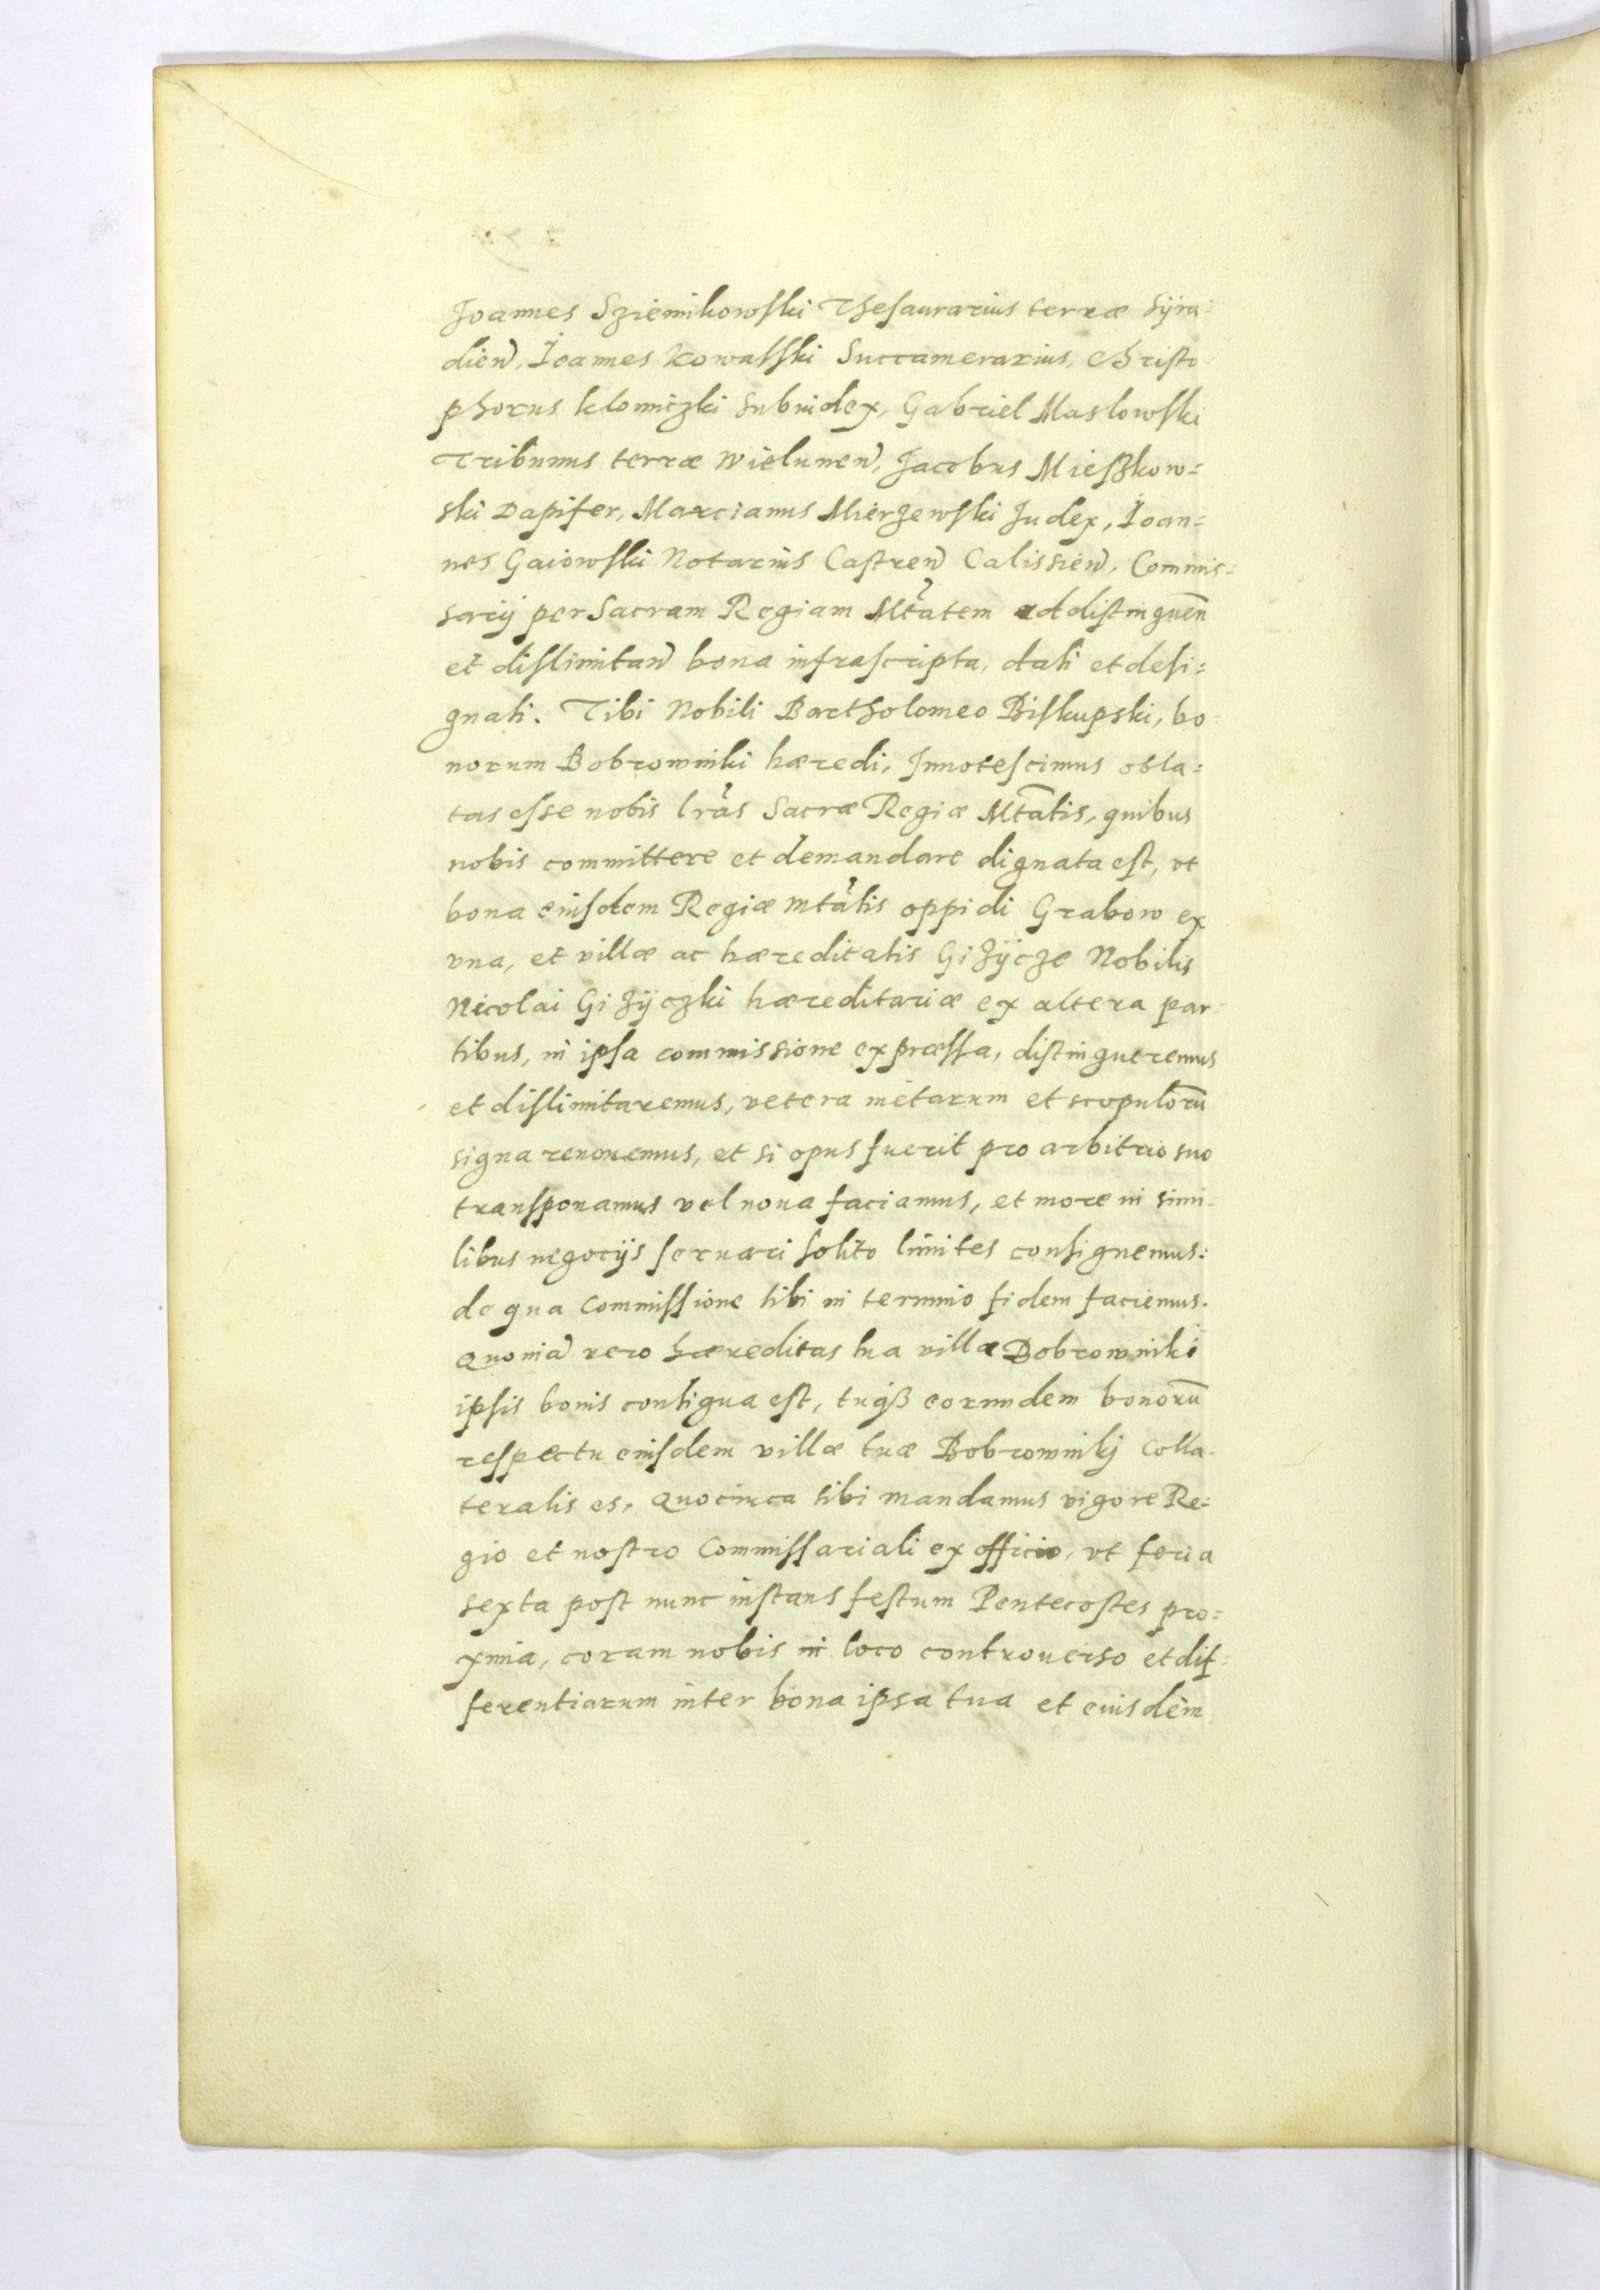 Joannes Sziemikowski Thesaurarius terræ Syra-
dien, Ioannes Kowalski Succamerarius, Christo
phorus Klomiczki Subiudex, Gabriel Maslowski
Tribunus terræ Wielunen, Jacobus Mieszkow=
ski Dapifer, Marcianus Mierzewski Judex, Ioan=
nes Gaiowski Notarius Castren Calissien, Commis=
sarij per Sacram Regiam Mtatem ad distinguen
et dislimitan bona infrascripta, dati et desi=
gnati. Tibi Nobili Bartholomeo Biskupski, bo-
norum Bobrowniki hæredi, Innotescimus obla=
tas esse nobis lras Sacræ Regiæ Mtatis, quibus
nobis committere et demandare dignata est, vt
bona eiusdem Regiæ Mtatis oppidi Grabow ex
vna, et villæ ac hæreditatis Giżÿcze Nobilis
Nicolai Giżÿczki hæreditariæ ex altera par-
tibus, in ipsa commissione expræssa, distingueremus
et dislimitaremus, vetera metarum et scopuloru
signa renouemus, et si opus fuerit pro arbitrio suo
transponamus vel noua faciamus, et more in simi-
libus negocijs seruari solito limites consignemus:
de qua Commissione tibi in termino fidem faciemus.
Quonia vero hæreditas tua villæ Bobrowniki
ipsis bonis contigua est, tuqß eorundem bonoru
respectu eiusdem villæ tuæ Bobrownikj Colla-
teralis es, Quocirca tibi mandamus vigore Re=
gio et nostro Commissariali ex officio, vt feria
sexta post nunc instans festum Pentecostes pro=
xima, coram nobis in loco controuerso et dif-
ferentiarum inter bona ipsa tua et eiusdem